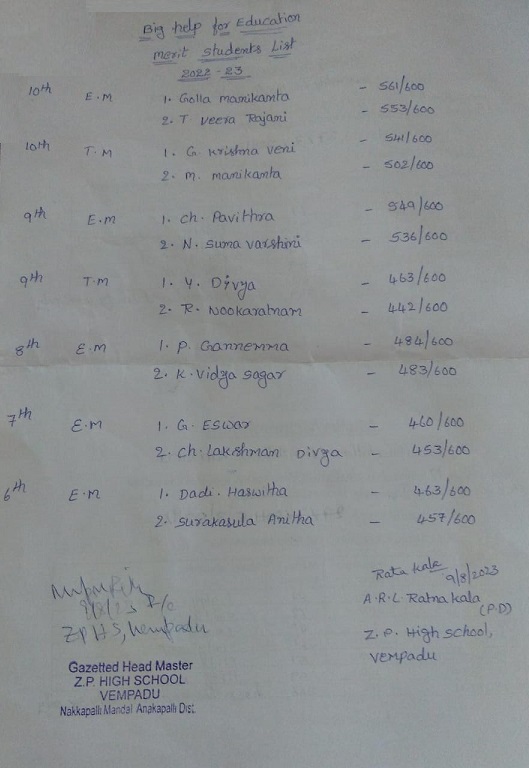 Big help for Education
merit students List
2022-23
10th E.M 1. Golla manikanta - 561/600
2. T Veera Rajani - 553/600
10th T.M 1. G. Krishna Veni - 541/600
2. M. manikanta - 502/600
9th E.M 1. Ch. Pavithra - 549/600
2. N. Suma varshini - 536/600
9th T.M 1. Y. Divya - 463/600
2. R. Nookaratnam - 442/600
8th E.M 1. P. Gannemma - 484/600
2. K. Vidya Sagar - 483/600
7th E.M 1. G. Eswar - 460/600
2. Ch. Lakshman Divya - 453/600
6th E.M 1. Dadi. Haswitha - 463/600
2. Surakasula Anitha - 457/600
ZPHS, Vempadu
Gazetted Head Master
Z.P. HIGH SCHOOL
VEMPADU
Nakkapalli Mandal Anakapalli Dist.
Ratna kala
9/8/2023
A.R.L Ratna kala
(P.D)
Z.P. High school,
VEMPADU